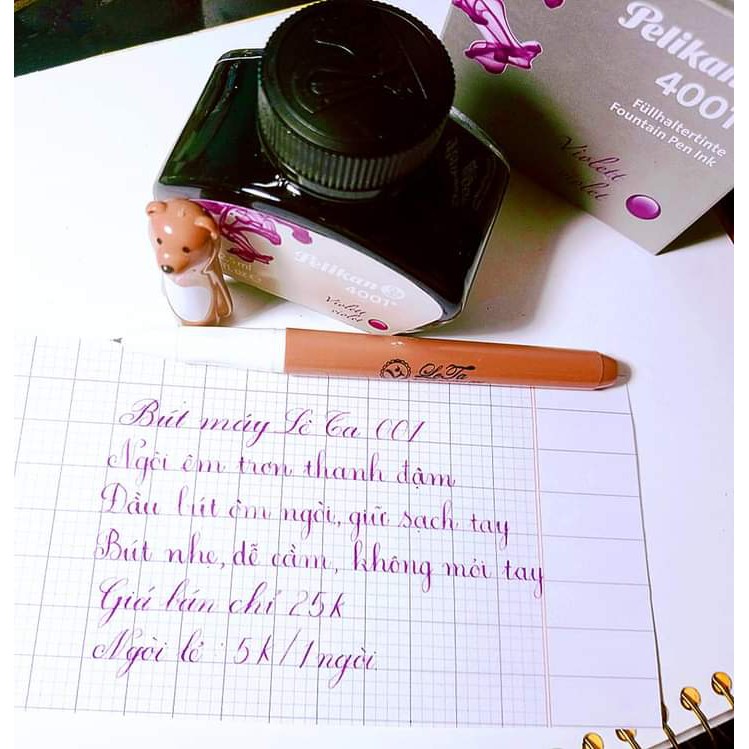 Pelikan
4001
Füllhaltertinte
Fountain Pen Ink
Violett
violet
Pelikan
4001
Violett
violet
LeTa
Bút máy Lê Ta 001
Ngòi êm trơn thanh đậm
Đầu bút ôm ngòi, giữ sạch tay
Bút nhẹ, dễ cầm, không mỏi tay
Giá bán chỉ 25k
Ngòi lẻ : 5k/1 ngòi